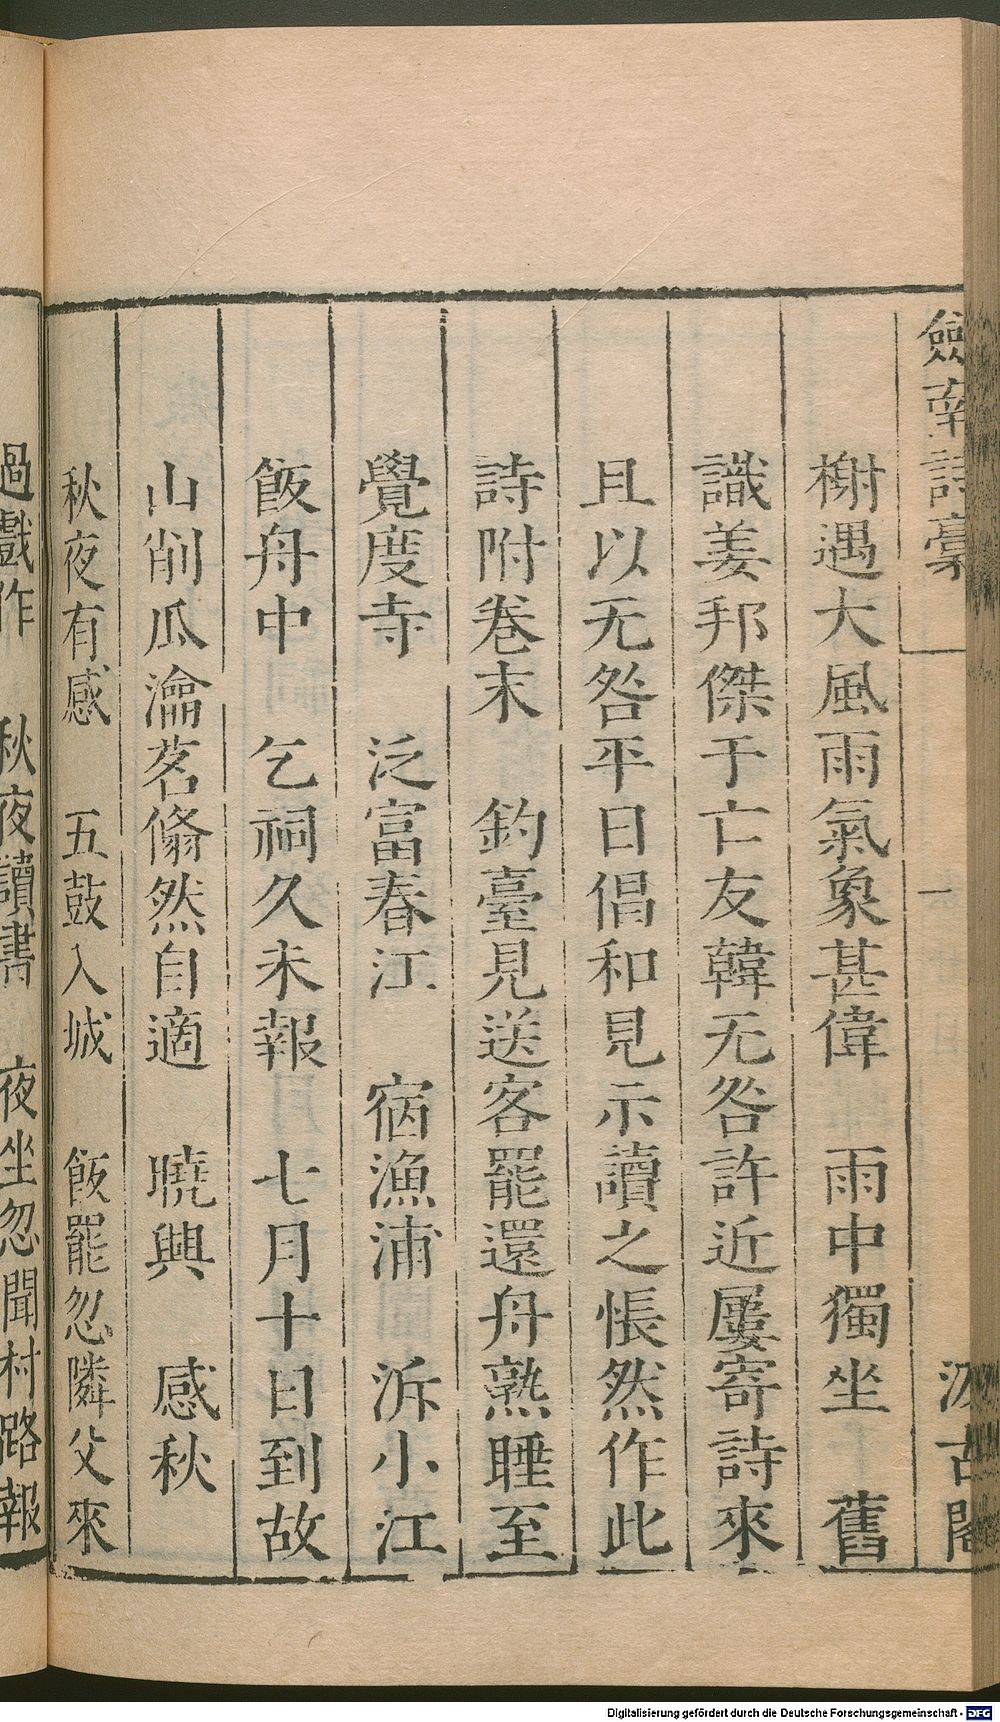 劒南詩稾 一 汲古閣
榭遇大風雨氣象甚偉 雨中獨坐 舊
識姜邦傑于亡友韓无咎許近屢寄詩來
且以无咎平日倡和見示讀之悵然作此
詩附卷末 釣臺見送客罷還舟熟睡至
覺度寺 泛富春江 宿漁浦 泝小江
飯舟中 乞祠久未報 七月十日到故
山削瓜瀹茗翛然自適 曉興 感秋
秋夜有感 五鼓入城 飯罷忽隣父來
過戲作 秋夜讀書 夜坐忽聞村路報
Digitalisierung gefördert durch die Deutsche Forschungsgemeinschaft - DFG